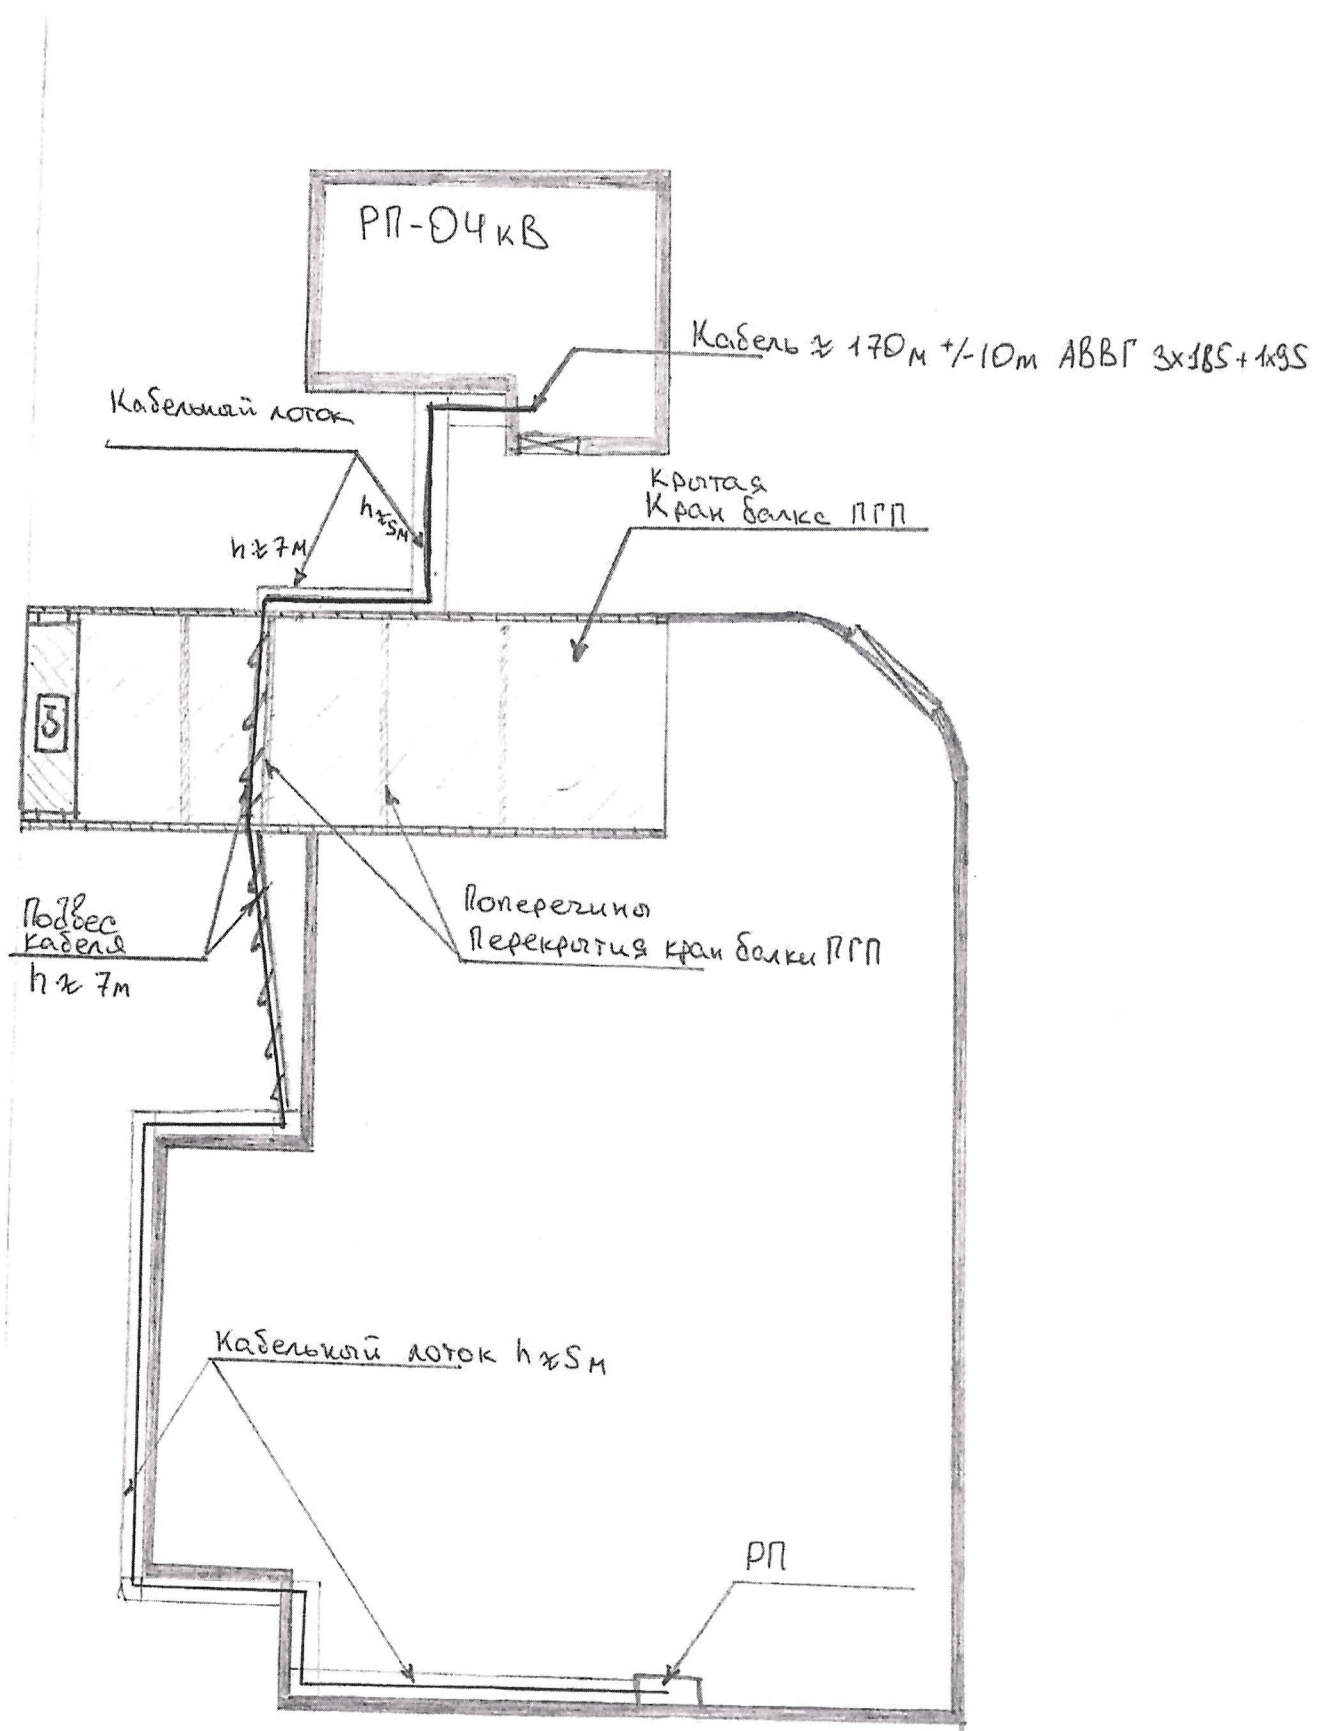 РП-04кВ
Кабель ≈ 170м +/-10м АВВГ 3х185+1х95
Кабельный лоток
h≈5м
h≈7м
Крытая
Кран балка ПГП
3
Подвес
кабеля
h ≈ 7м
Поперечины
Перекрытия кран балки ПГП
Кабельный лоток h≈5м
РП